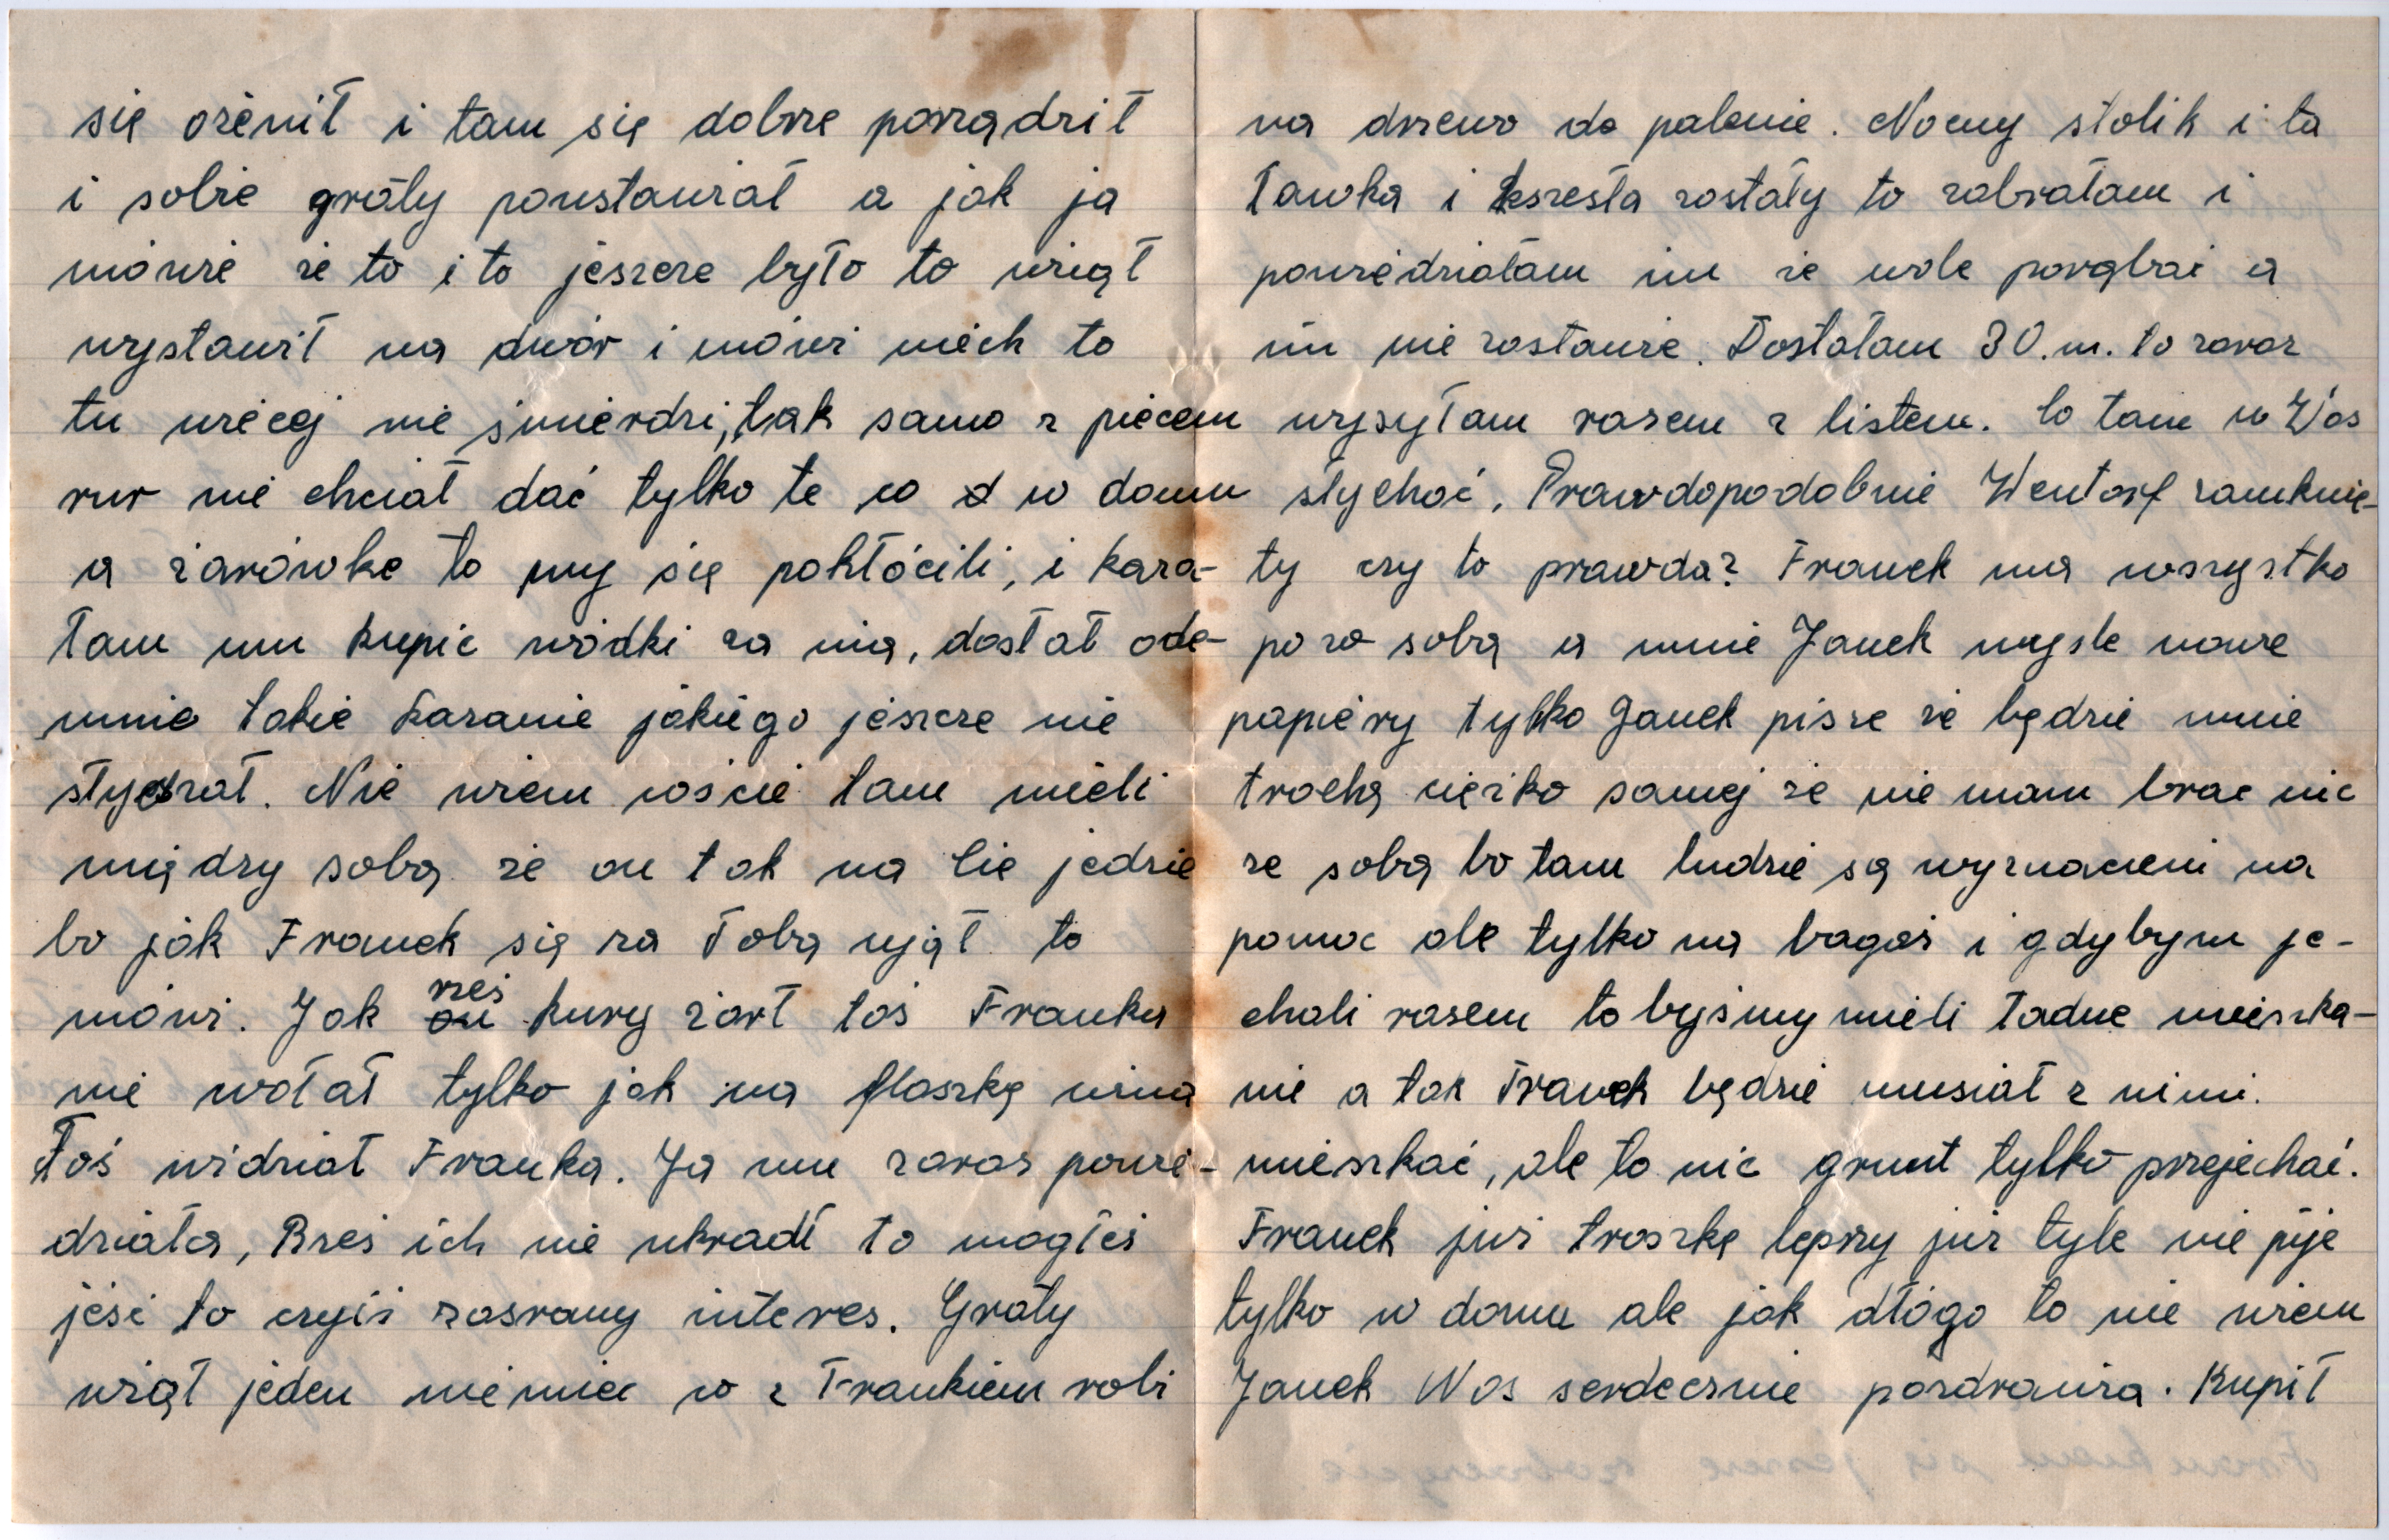 się ożenił i tam się dobrze porządził
i sobie graty poustawiał a jak ja
mówie że to i to jeszcze było to wziął
wystawił na dwór i mówi niech to
tu wiecej nie śmierdzi, tak samo z piecem
rur nie chciał dać tylko te co w domu
a żarówke to my się pokłócili, i kaza-
łam mu kupic wódki za nią, dostał ode-
mnie takie kazanie jakiego jeszcze nie
słyszał. Nie wiem coście tam mieli
między sobą że on tak na Cie jedzie
bo jak Franek się za Tobą ujął to
mówi. Jak żeś kury żarł toś Franka
nie wołał tylko jak na flaszkę wina
Toś widział Franka. Ja mu zaraz powie-
działa, Bześ ich nie ukradł to mogłeś
jeść to czyiś zasrany interes. Graty
wziął jeden niemiec co z Frankiem robi
na drzewo do palenie. Nocny stolik i ta
ławka i kszesła zostały to zabrałam i
powiedziałam im że wole porąbać a
im nie zostawie. Dostałam 30.m. to zaraz
wysyłam razem z listem. Co tam u Was
słychać. Prawdopodobnie Wentorf zamknię-
ty czy to prawda? Franek ma wszystko
po za sobą a mnie Janek wysle nowe
papiery tylko Janek pisze że będzie mnie
trochą ciężko samej że nie mam brac nic
ze sobą bo tam ludzie są wyznaczeni na
pomoc ale tylko na bagaż i gdybym je-
chali razem to byśmy mieli ładne mieszka-
nie a tak Franek będzie musiał z nimi.
mieszkać, ale to nic grunt tylko przejechać.
Franek już troszkę lepszy już tyle nie pije
tylko w domu ale jak dłógo to nie wiem
Janek Was serdecznie pozdrawia. Kupił